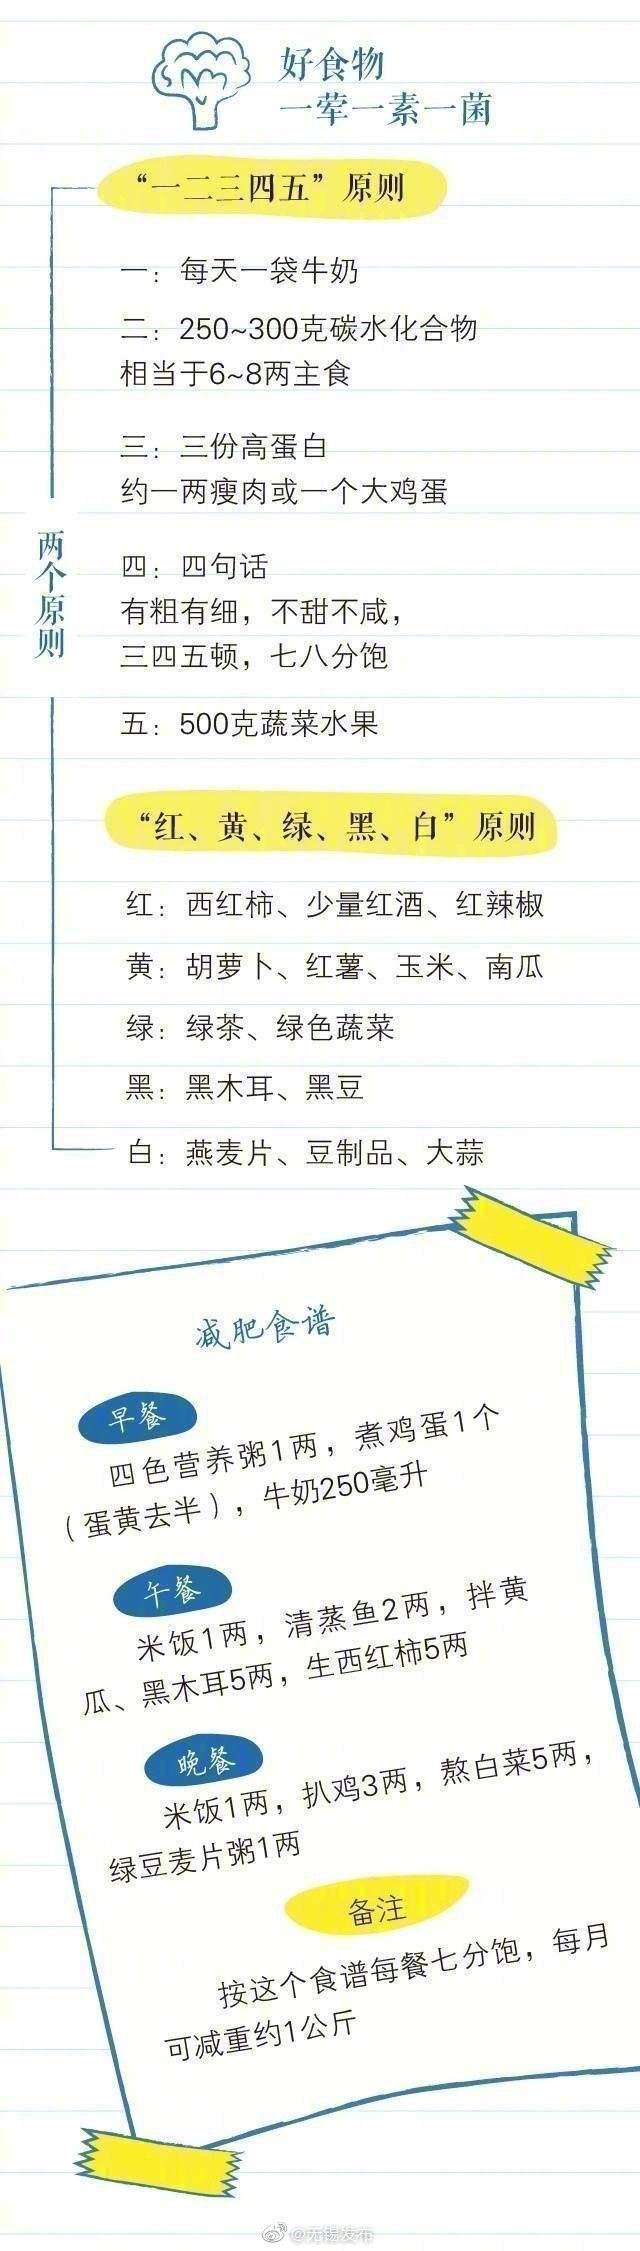 好食物
一荤一素一菌
“一二三四五”原则
一：每天一袋牛奶
二：250~300克碳水化合物
相当于6~8两主食
三：三份高蛋白
约一两瘦肉或一个大鸡蛋
两个原则
四：四句话
有粗有细，不甜不咸，
三四五顿，七八分饱
五：500克蔬菜水果
“红、黄、绿、黑、白”原则
红：西红柿、少量红酒、红辣椒
黄：胡萝卜、红薯、玉米、南瓜
绿：绿茶、绿色蔬菜
黑：黑木耳、黑豆
白：燕麦片、豆制品、大蒜
减肥食谱
早餐
四色营养粥1两，煮鸡蛋1个
（蛋黄去半），牛奶250毫升
午餐
米饭1两，清蒸鱼2两，拌黄
瓜、黑木耳5两，生西红柿5两
晚餐
米饭1两，扒鸡3两，熬白菜5两，
绿豆麦片粥1两
备注
按这个食谱每餐七分饱，每月
可减重约1公斤
@无锡发布